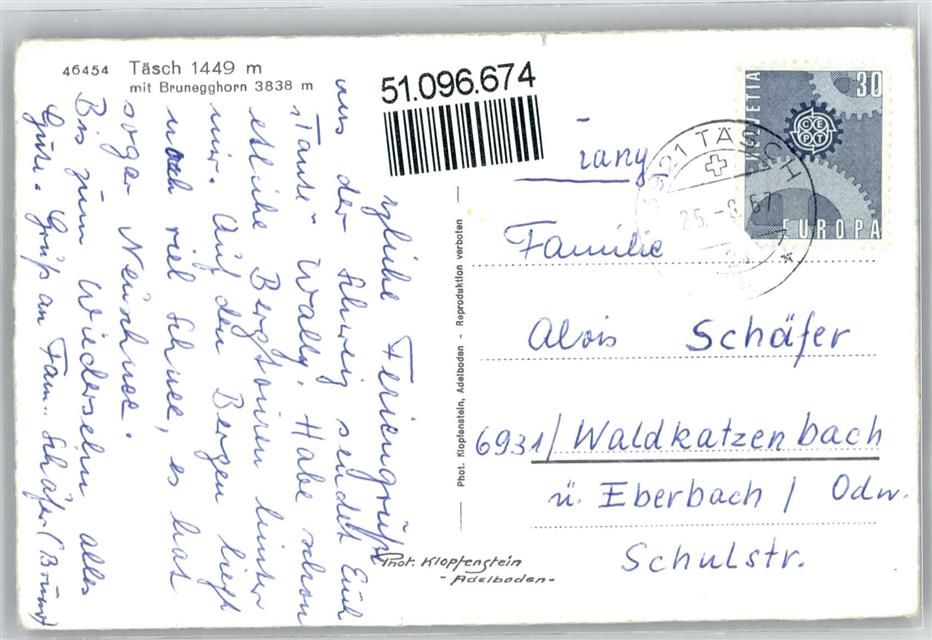 46454 Täsch 1449 m
mit Brunegghorn 3838 m
51.096.674
HELVETIA
30
CEPT
EUROPA
3921 TÄSCH
25.-8.67
Familie
Alois Schäfer
6931/ Waldkatzenbach
ü. Eberbach / Odw.
Schulstr.
Phot. Klopfenstein, Adelboden - Reproduktion verboten
Phot. Klopfenstein
- Adelboden -
zliche Feriengrüße
aus der Schweiz sendet Euch
"Tante" Wally. Habe schon
etliche Bergtouren hinter
mir. Auf den Bergen liegt
noch viel Schnee, es hat
sogar Neuschnee.
Bis zum Wiedersehn alles
Gute. Gruß an Fam. Schäfer (Bruno)